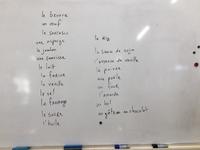 le beurre
un oeuf
le saucisson
une asperge
le jambon
une saucisse
le lait
la farine
la vanille
le sel
le fromage
le sucre
l'huile
le riz
la sauce de soja
l'essence de vanille
le poivre
une poêle
un four
l'amande
un bol
un gâteau au chocolat